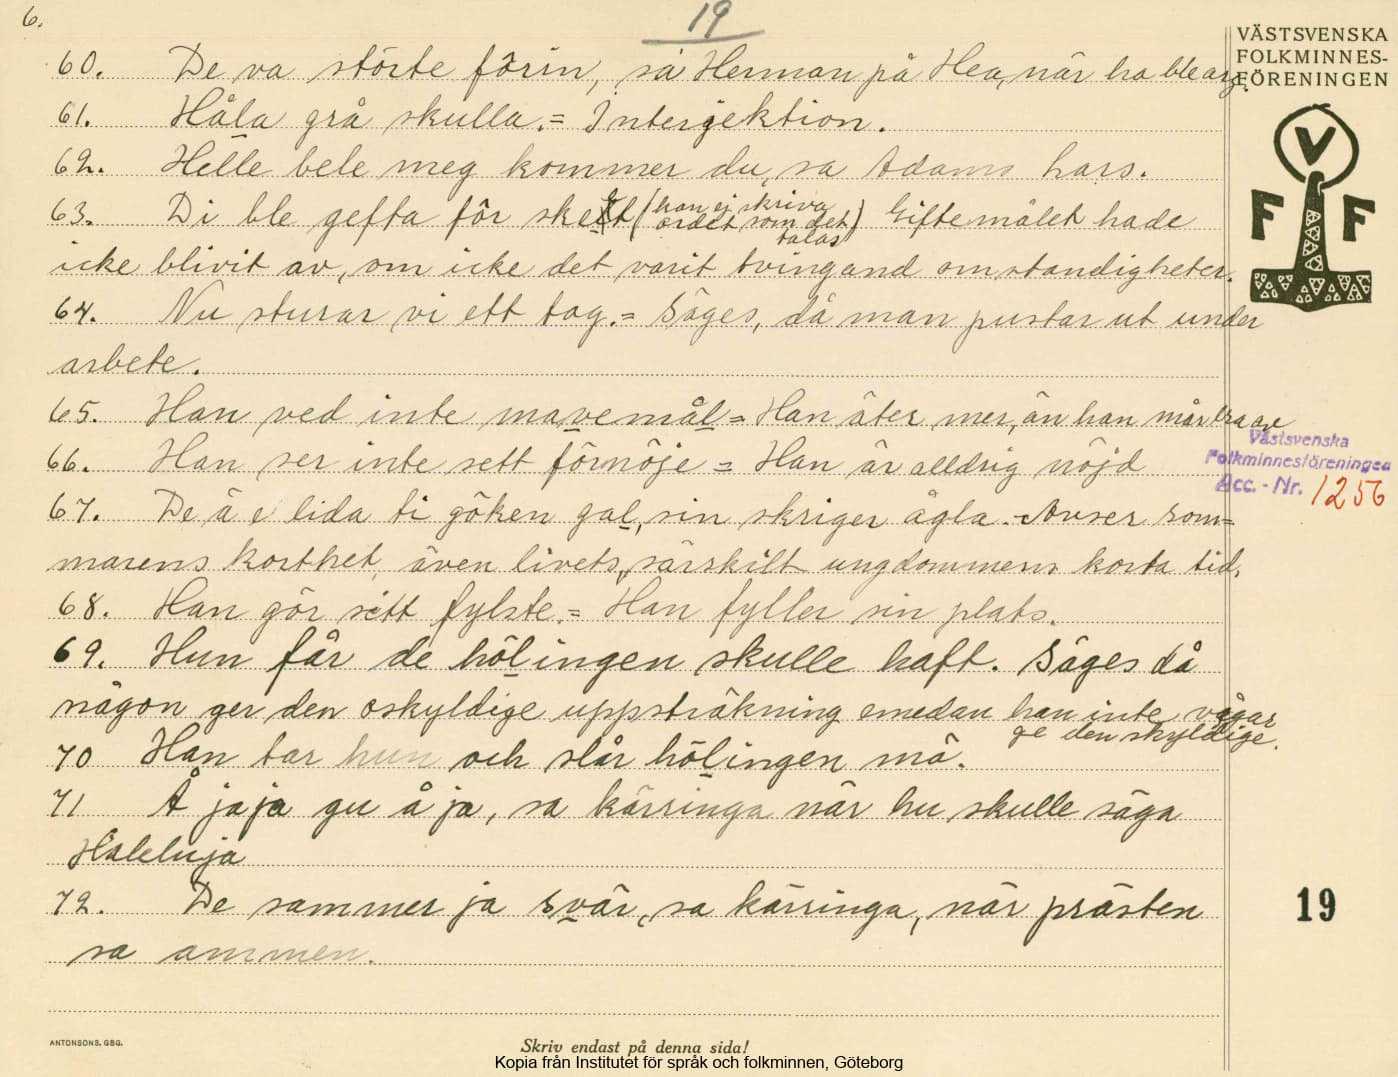 6.
19
VÄSTSVENSKA
FOLKMINNES-
FÖRENINGEN
60. De va störte förin, sa Herman på Hea, när ha ble arg.
61. Håla grå skulla. = Interjektion.
62. Helle bele meg kommer du, sa Adams hars.
63. Di ble gefta för skett (kan ej skriva ordet som det talas) Giftemålet hade
icke blivit av, om icke det varit tvingand omständigheter.
64. Nu sturar vi ett tag. = Säges, då man pustar ut under
arbete.
65. Han ved inte mavemål = Han äter mer, än han mår bra av
66. Han ser inte sett förnöje = Han är alldrig nöjd
67. De ä e lida ti göken gal, sin skriger ågla. - Avser som=
marens korthet, även livets, särskilt ungdommens korta tid.
68. Han gör sitt fylste. = Han fyller sin plats.
69. Hun får de hölingen skulle haft. Säges då
någon ger den oskyldige uppsträkning emedan han inte vågar
ge den skyldige.
70 Han tar hun och slår hölingen mä.
71 Å jaja gu å ja, sa kärringa när hu skulle säga
Haleluja
72. De sammer ja svär, sa kärringa, när prästen
sa ammen.
V
F F
Västsvenska
Folkminnesföreningen
Acc. - Nr. 1256
19
ANTONSONS, GBG.
Skriv endast på denna sida!
Kopia från Institutet för språk och folkminnen, Göteborg